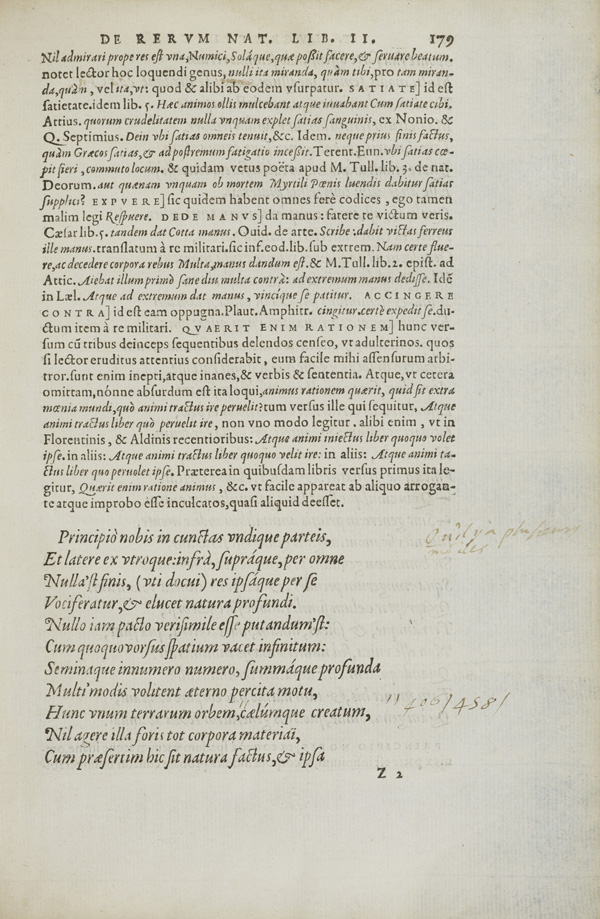 DE RERVM NAT. LIB. II. 179
Nil admirari prope res est vna, Numici, Soláque, quæ poßit facere, & seruare beatum.
notet lector hoc loquendi genus, nulli ita miranda, quàm tibi, pro tam miran-
da, quàm, vel ita, vt: quod & alibi ab eodem vsurpatur. SATIATE] id est
satietate. idem lib. 5. Hæc animos ollis mulcebant atque iuuabant Cum satiate cibi.
Attius. quorum crudelitatem nulla vnquam explet satias sanguinis, ex Nonio. &
Q. Septimius. Dein vbi satias omneis tenuit, &c. Idem. neque prius finis factus,
quàm Græcos satias, & ad postremum fatigatio inceßit. Terent. Eun. vbi satias cœ-
pit fieri, commuto locum. & quidam vetus poëta apud M. Tull. lib. 3. de nat.
Deorum. aut quænam vnquam ob mortem Myrtili Pœnis luendis dabitur satias
supplici? EXPVERE] sic quidem habent omnes ferè codices, ego tamen
malim legi Respuere. DEDE MANVS] da manus: fatere te victum veris.
Cæsar lib. 5. tandem dat Cotta manus. Ouid. de arte. Scribe: dabit victas ferreus
ille manus. translatum à re militari. sic inf. eod. lib. sub extrem. Nam certe flue-
re, ac decedere corpora rebus Multa, manus dandum est. & M. Tull. lib. 2. epist. ad
Attic. Aiebat illum primò sane diu multa contrà: ad extremum manus dedisse. Idē
in Læl. Atque ad extremum dat manus, vincique se patitur. ACCINGERE
CONTRA] id est eam oppugna. Plaut. Amphitr. cingitur. certè expedit se. du-
ctum item à re militari. QVAERIT ENIM RATIONEM] hunc ver-
sum cū tribus deinceps sequentibus delendos censeo, vt adulterinos. quos
si lector eruditus attentius considerabit, eum facile mihi assensurum arbi-
tror. sunt enim inepti, atque inanes, & verbis & sententia. Atque, vt cetera
omittam, nónne absurdum est ita loqui, animus rationem quærit, quid sit extra
mœnia mundi, quò animi tractus ire peruelit? tum versus ille qui sequitur, Atque
animi tractus liber quò peruelit ire, non vno modo legitur. alibi enim, vt in
Florentinis, & Aldinis recentioribus: Atque animi iniectus liber quoquo volet
ipse. in aliis: Atque animi tractus liber quoquo velit ire: in aliis: Atque animi ta-
ctus liber quo peruolet ipse. Præterea in quibusdam libris versus primus ita le-
gitur, Quærit enim ratione animus, &c. vt facile appareat ab aliquo arrogan-
te atque improbo esse inculcatos, quasi aliquid deesset.
Principiò nobis in cunctas vndique parteis,
Et latere ex vtroque: infrà, supráque, per omne
Nulla'st finis, (vti docui) res ipsáque per se
Vociferatur, & elucet natura profundi.
Nullo iam pacto verisimile esse putandum'st:
Cum quoquo vorsus spatium vacet infinitum:
Seminaque innumero numero, summáque profunda
Multi' modis volitent æterno percita motu,
Hunc vnum terrarum orbem, cælúmque creatum,
Nil agere illa foris tot corpora materiaï,
Cum præsertim hic sit natura factus, & ipsa
Z 2